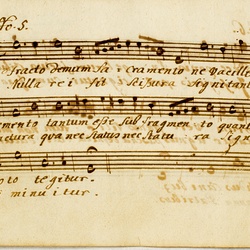 No 5.
fracto demum Sa cramento ne Vacille
Nulla rei fit Scissura Signi tant
mento tantum esse Sub fragmen to quan
actura qua nec Status nec Statu ra sign
to tegitur.
minuitur.